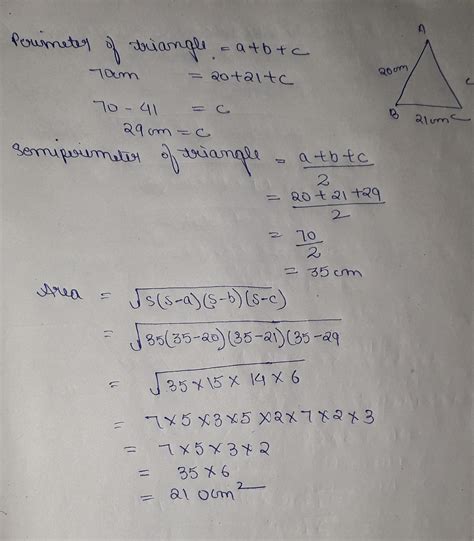 Perimeter of triangle = a+b+c
70cm = 20+21+c
70 - 41 = c
29cm = c
A
20cm
c
B
21cm
C
Semiperimeter of triangle = a+b+c
2
= 20+21+29
2
= 70
2
= 35cm
Area = √s(s-a)(s-b)(s-c)
= √35(35-20)(35-21)(35-29
= √35×15×14×6
= 7×5×3×5×2×7×2×3
= 7×5×3×2
= 35×6
= 210cm²